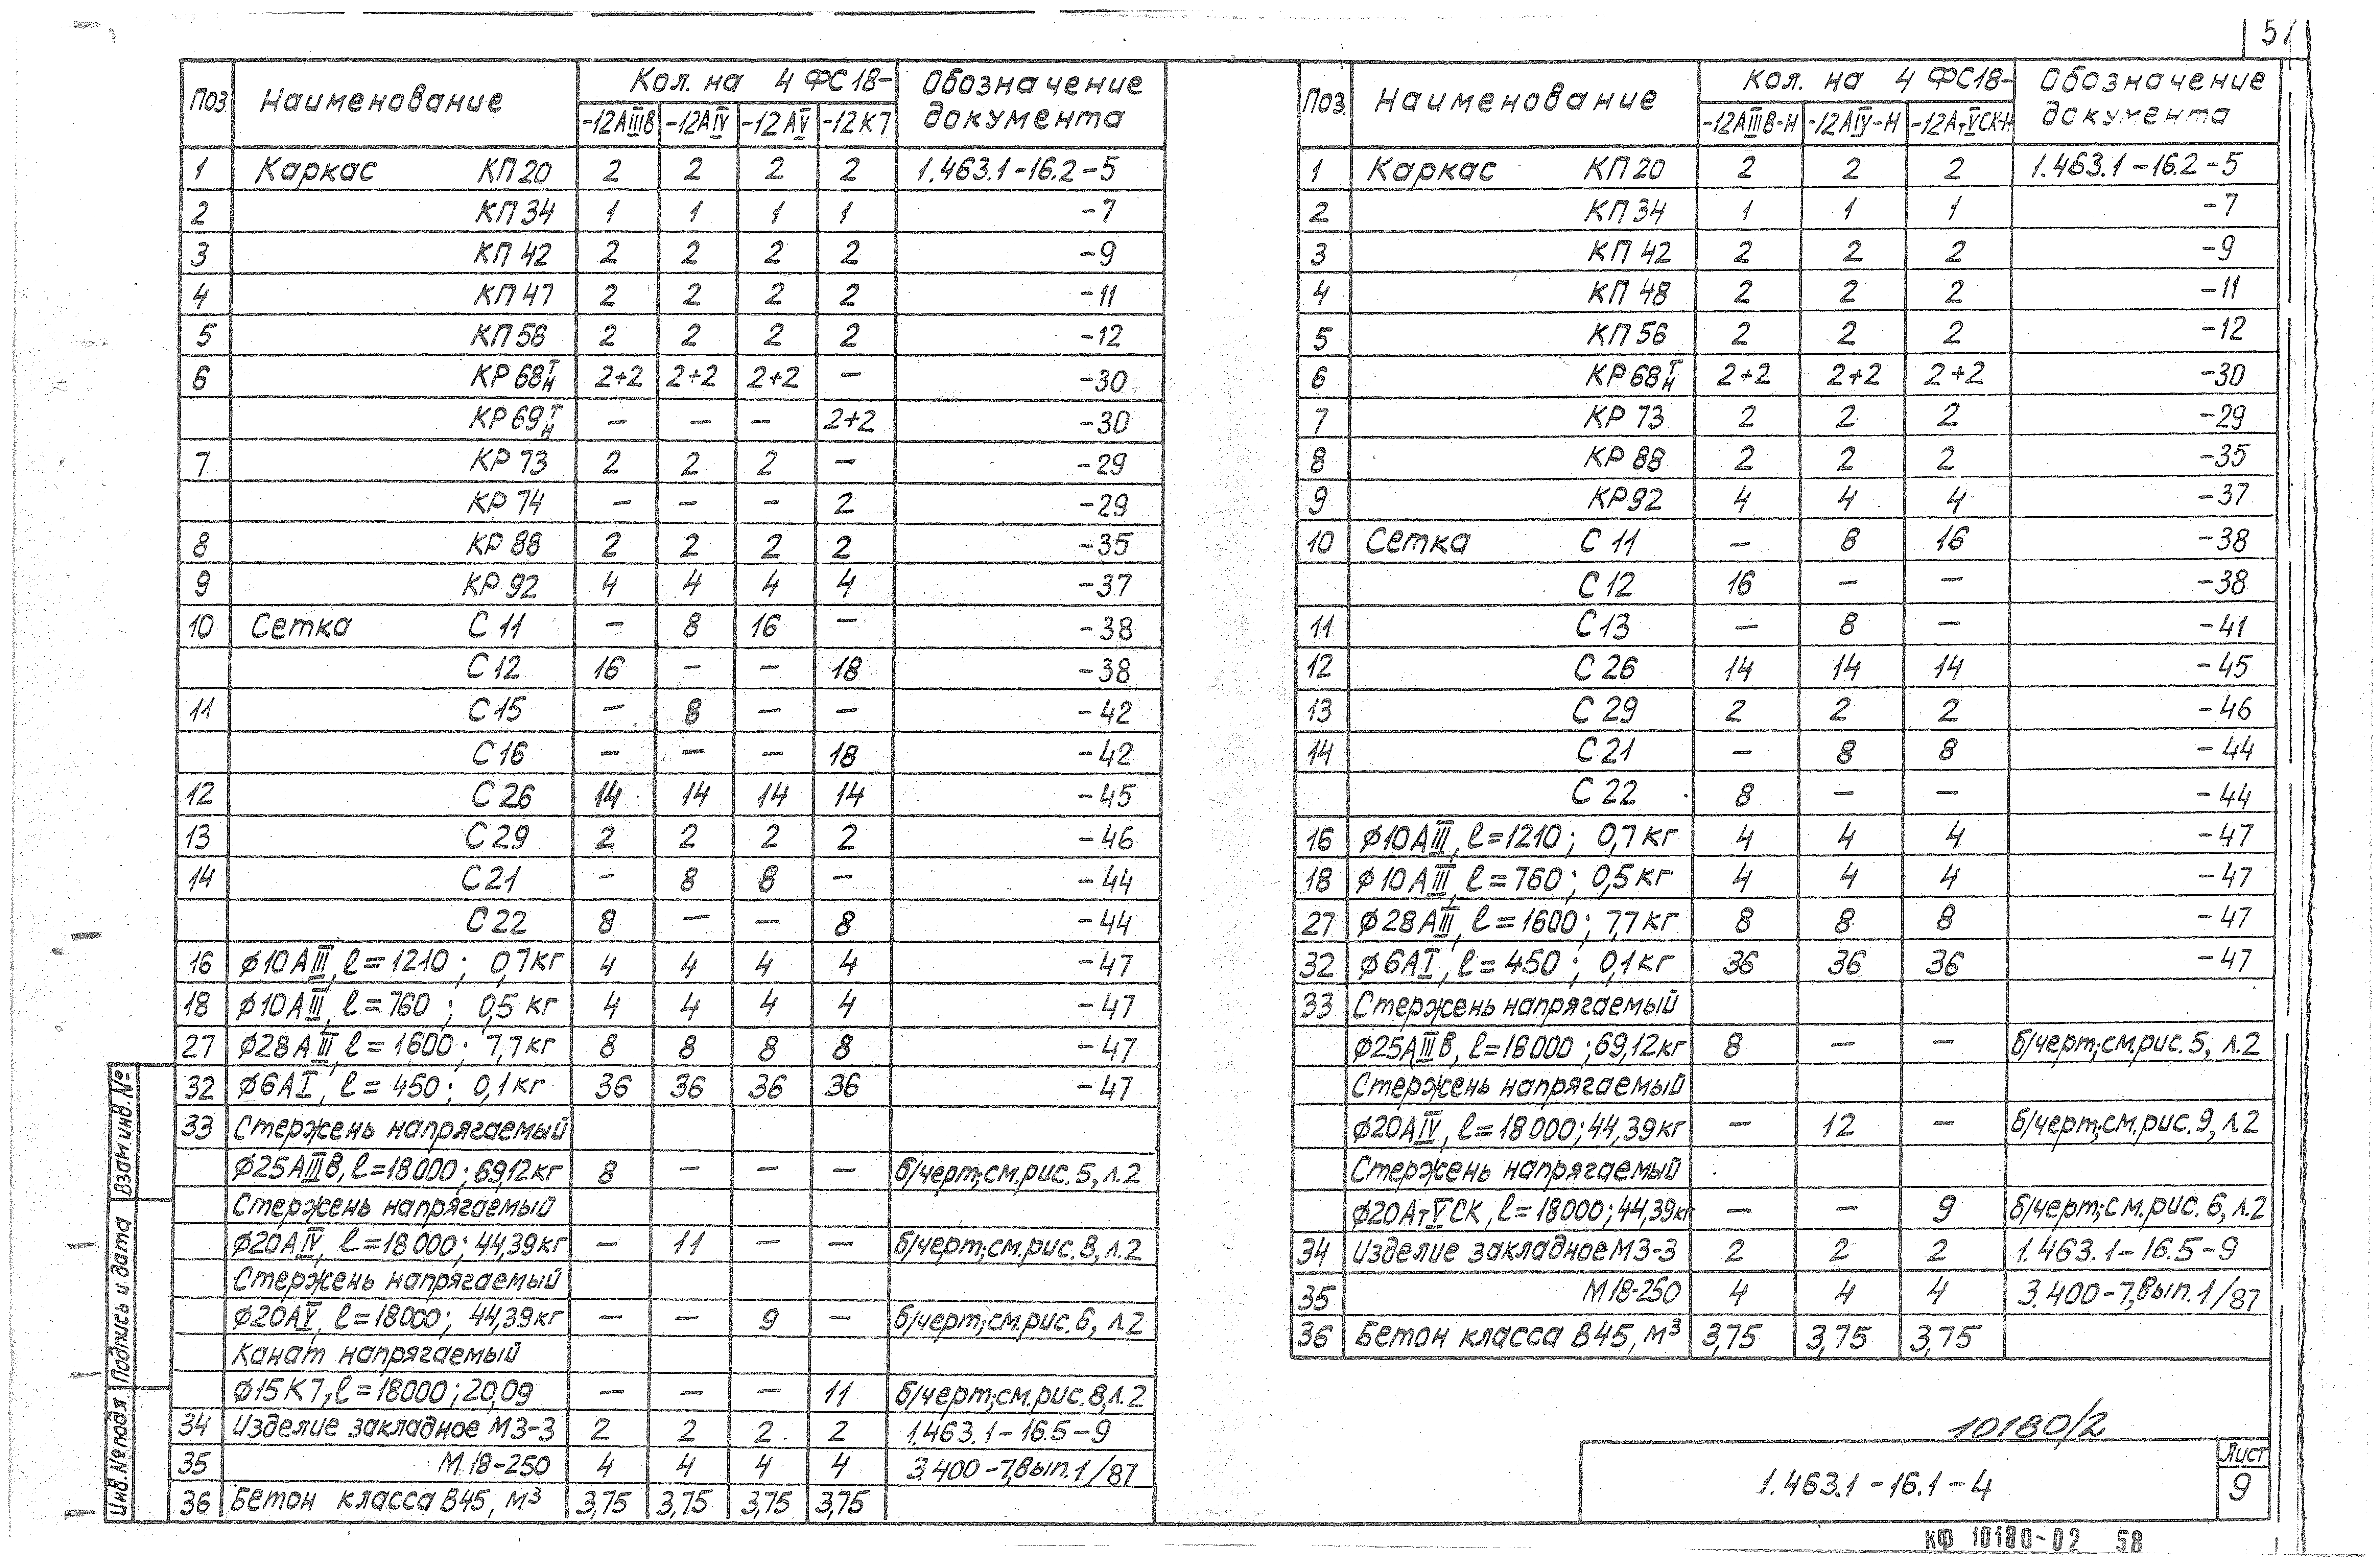 57
Поз. Наименование Кол. на 4ФС18- Обозначение документа
-12АIIIв -12АIV -12АV -12К7
1 Каркас КП20 2 2 2 2 1.463.1-16.2-5
2 КП34 1 1 1 1 -7
3 КП42 2 2 2 2 -9
4 КП47 2 2 2 2 -11
5 КП56 2 2 2 2 -12
6 КР68Т/Н 2+2 2+2 2+2 — -30
КР69Т/Н — — — 2+2 -30
7 КР73 2 2 2 — -29
КР74 — — — 2 -29
8 КР88 2 2 2 2 -35
9 КР92 4 4 4 4 -37
10 Сетка С11 — 8 16 — -38
С12 16 — — 18 -38
11 С15 — 8 — — -42
С16 — — — 18 -42
12 С26 14 14 14 14 -45
13 С29 2 2 2 2 -46
14 С21 — 8 8 — -44
С22 8 — — 8 -44
16 ϕ10АIII, ℓ=1210; 0,7кг 4 4 4 4 -47
18 ϕ10АIII, ℓ=760; 0,5кг 4 4 4 4 -47
27 ϕ28АIII, ℓ=1600; 7,7кг 8 8 8 8 -47
32 ϕ6АI, ℓ=450; 0,1кг 36 36 36 36 -47
33 Стержень напрягаемый
ϕ25АIIIв, ℓ=18000; 69,12кг 8 — — — б/черт; см.рис.5, л.2
Стержень напрягаемый
ϕ20АIV, ℓ=18000; 44,39кг — 11 — — б/черт; см.рис.8, л.2
Стержень напрягаемый
ϕ20АV, ℓ=18000; 44,39кг — — 9 — б/черт; см.рис.6, л.2
Канат напрягаемый
ϕ15К7, ℓ=18000; 20,09 — — — 11 б/черт; см.рис.8, л.2
34 Изделие закладное М3-3 2 2 2 2 1.463.1-16.5-9
35 М18-250 4 4 4 4 3.400-7, вып.1/87
36 Бетон класса В45, м³ 3,75 3,75 3,75 3,75
Поз. Наименование Кол. на 4ФС18- Обозначение документа
-12АIIIв-Н -12АIV-Н -12АтVСК-Н
1 Каркас КП20 2 2 2 1.463.1-16.2-5
2 КП34 1 1 1 -7
3 КП42 2 2 2 -9
4 КП48 2 2 2 -11
5 КП56 2 2 2 -12
6 КР68Т/Н 2+2 2+2 2+2 -30
7 КР73 2 2 2 -29
8 КР88 2 2 2 -35
9 КР92 4 4 4 -37
10 Сетка С11 — 8 16 -38
С12 16 — — -38
11 С13 — 8 — -41
12 С26 14 14 14 -45
13 С29 2 2 2 -46
14 С21 — 8 8 -44
С22 8 — — -44
16 ϕ10АIII, ℓ=1210; 0,7кг 4 4 4 -47
18 ϕ10АIII, ℓ=760; 0,5кг 4 4 4 -47
27 ϕ28АIII, ℓ=1600; 7,7кг 8 8 8 -47
32 ϕ6АI, ℓ=450; 0,1кг 36 36 36 -47
33 Стержень напрягаемый
ϕ25АIIIв, ℓ=18000; 69,12кг 8 — — б/черт; см.рис.5, л.2
Стержень напрягаемый
ϕ20АIV, ℓ=18000; 44,39кг — 12 — б/черт; см.рис.9, л.2
Стержень напрягаемый
ϕ20АтVСК, ℓ=18000; 44,39кг — — 9 б/черт; см.рис.6, л.2
34 Изделие закладное М3-3 2 2 2 1.463.1-16.5-9
35 М18-250 4 4 4 3.400-7, вып.1/87
36 Бетон класса В45, м³ 3,75 3,75 3,75
Взам.инв.№
Подпись и дата
Инв.№ подл
10180/2
1.463.1-16.1-4
Лист
9
КФ 10180-02 58